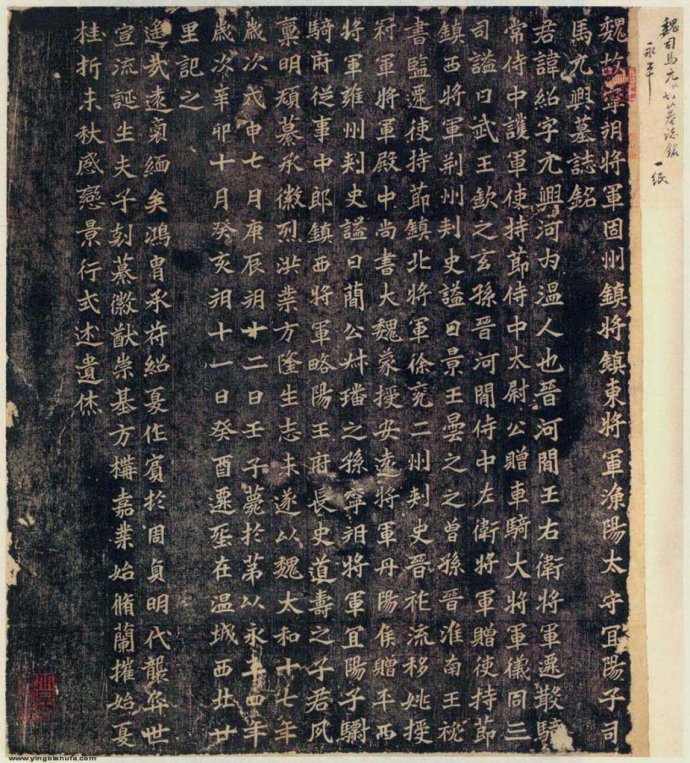 魏司馬元興墓誌銘 一紙
永平
魏故寧朔將軍固州鎮將鎮東將軍漁陽太守宜陽子司
馬元興墓誌銘
君諱紹字元興河內溫人也晉河間王右衛將軍遷散騎
常侍中護軍使持節侍中太尉公贈車騎大將軍儀同三
司謚曰武王欽之玄孫晉河間侍中左衛將軍贈使持節
鎮西將軍荊州刺史謚曰景王曇之之曾孫晉淮南王祕
書監遷使持節鎮北將軍徐兗二州刺史晉祚流移姚授
冠軍將軍殿中尚書大魏蒙授安遠將軍丹陽侯贈平西
將軍雍州刺史謚曰簡公叔璠之孫寧朔將軍宜陽子驃
騎府從事中郎鎮西將軍略陽王府長史道壽之子君夙
稟明頎纂承徽烈洪業方隆生志未遂以魏太和十七年
歲次戊申七月庚辰朔十二日壬子薨於第以永平四年
歲次辛卯十月癸亥朔十一日癸酉遷塟在溫城西北廿
里記之
遙哉遠裔緬矣鴻胄承苻紹夏作賓於周貞明代襲弈世
宣流誕生夫子剋纂徽猷崇基方構嘉業始脩蘭摧始夏
桂折未秋感戀景行式述遺休
www.yingbishufa.com